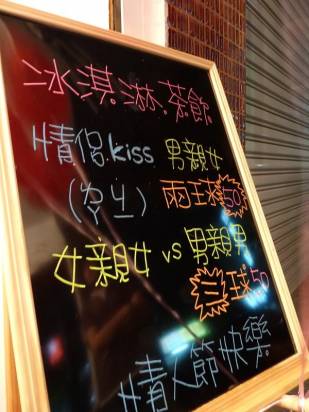 冰淇淋.茶飲
情侶.kiss 男親女
兩球50
女親女 vs 男親男
三球50
情人節快樂